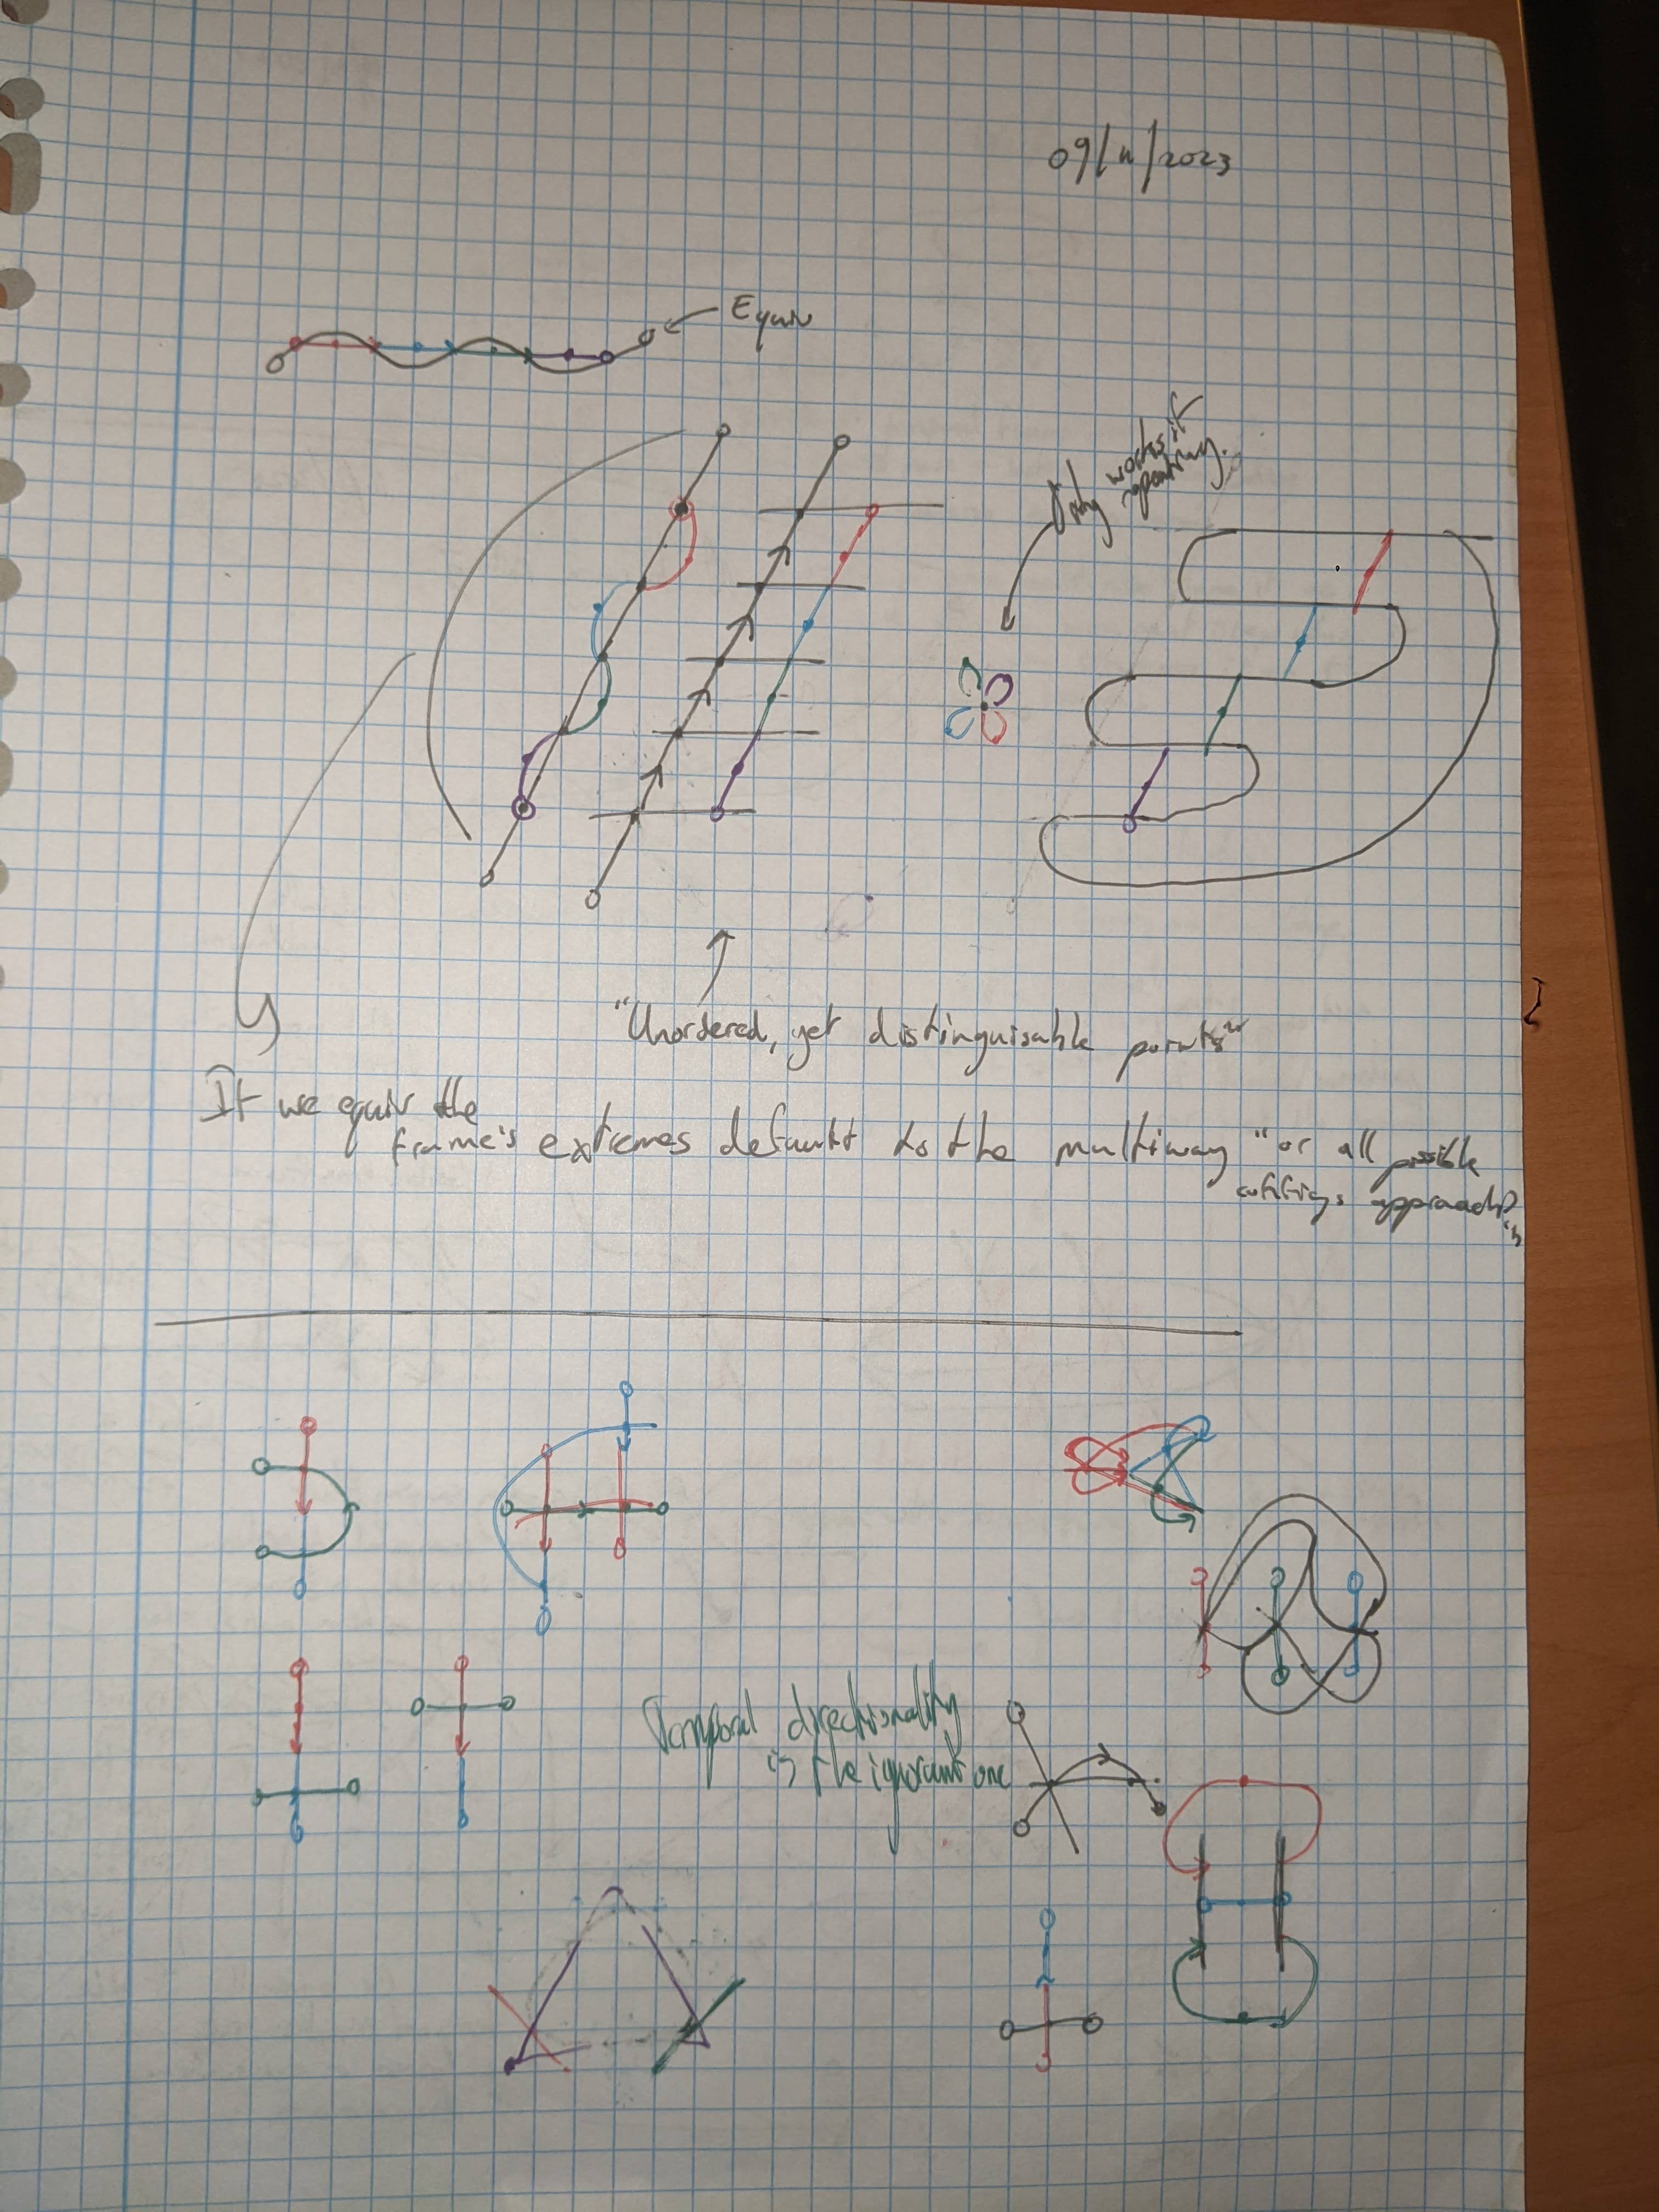 09/11/2023
Equiv
Only works if
repeating.
"Unordered, yet distinguisable points"
It we equiv the
frame's extremes default to the multiway "or all possible
approach"
Temporal directionality
is the ignorant one